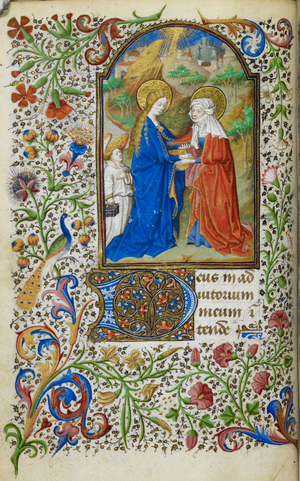 Deus in ad
iutorium
meum i
tende